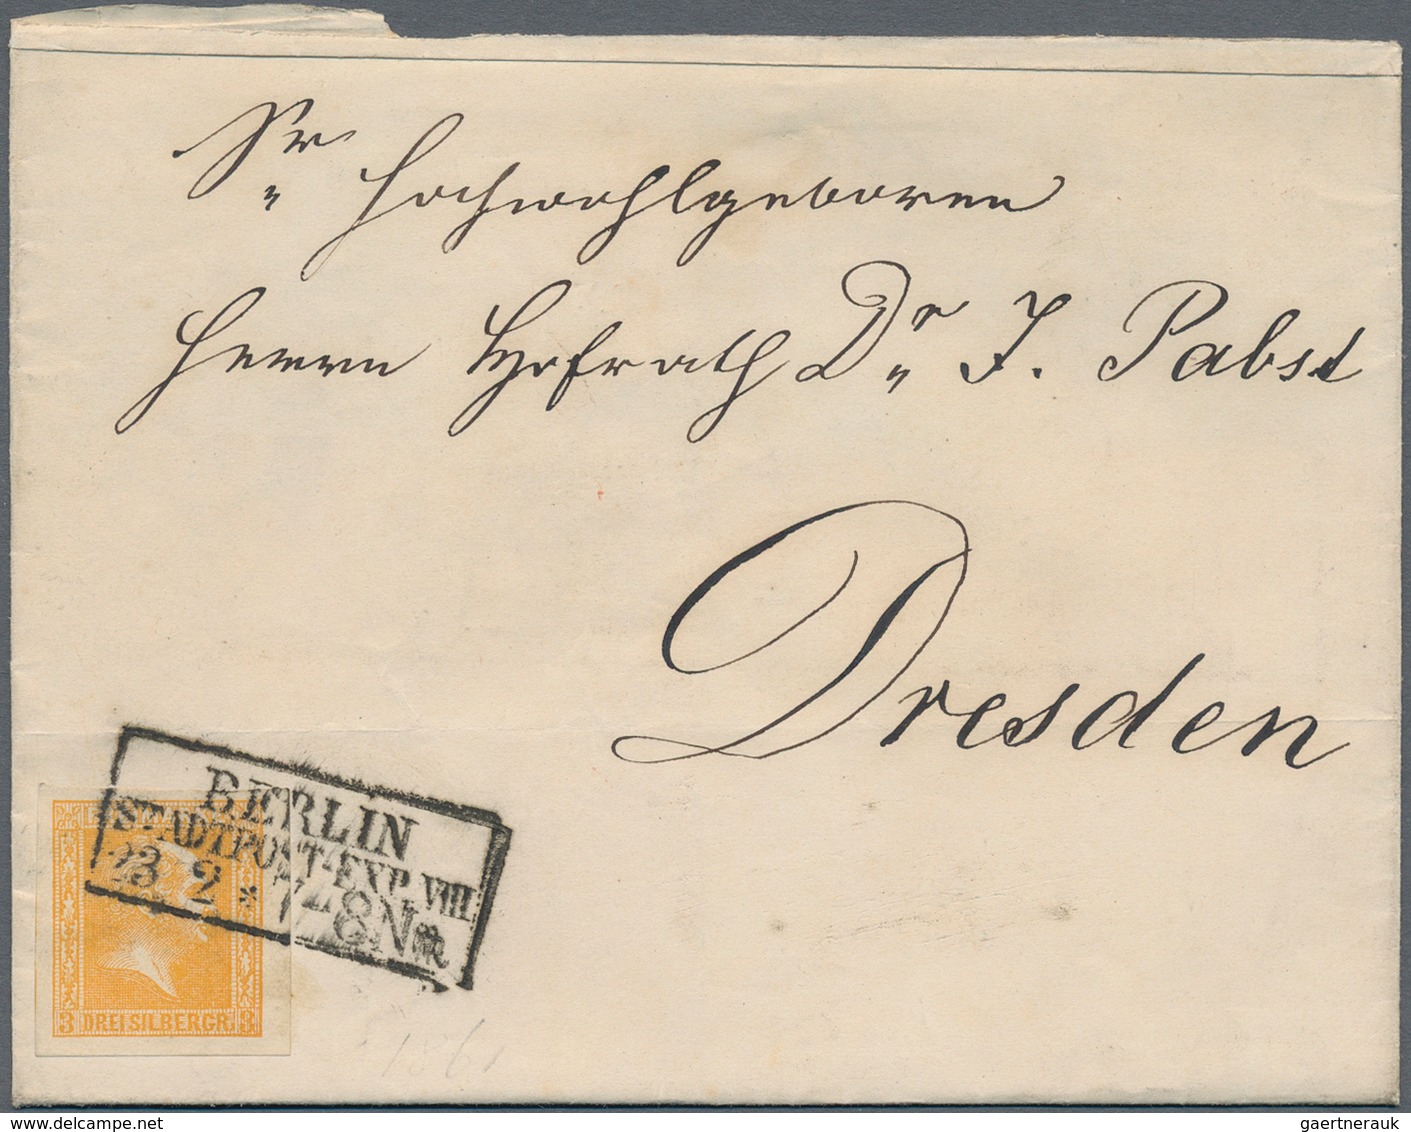 Sr
Hochwohlgeboren
Herrn Hofrath Dr J. Pabst
Dresden
BERLIN
STADTPOST-EXP. VIII.
23 2 * 7-8 N *
3 DREI SILBERGR. 3
1861
gaertnerauk
delcampe.net